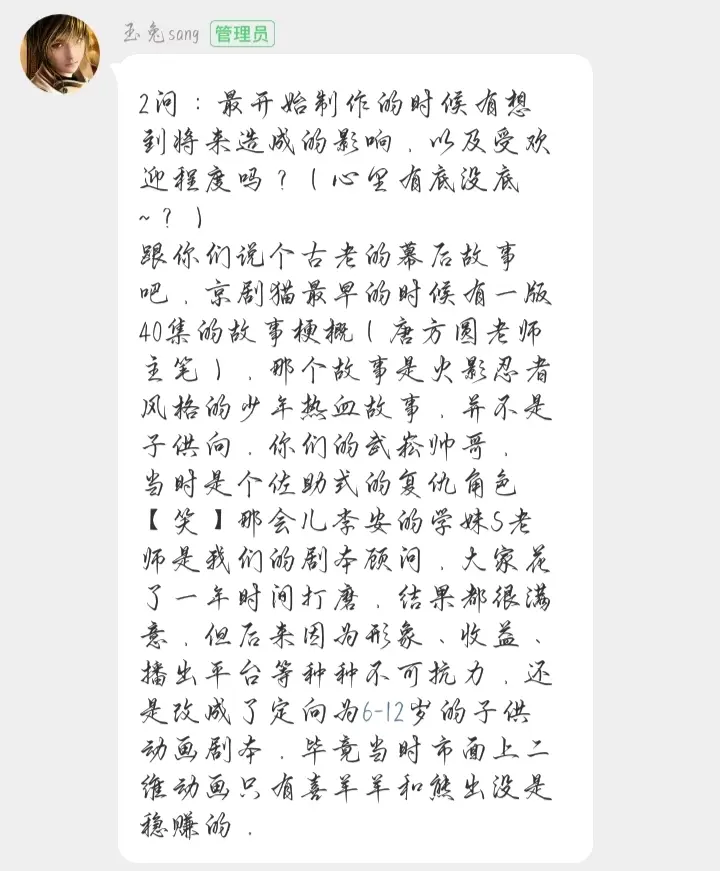 玉兔sang 管理员
2问：最开始制作的时候有想
到将来造成的影响，以及受欢
迎程度吗？（心里有底没底
~？）
跟你们说个古老的幕后故事
吧，京剧猫最早的时候有一版
40集的故事梗概（唐方圆老师
主笔），那个故事是火影忍者
风格的少年热血故事，并不是
子供向，你们的武崧帅哥，
当时是个佐助式的复仇角色
【笑】那会儿李安的学妹S老
师是我们的剧本顾问，大家花
了一年时间打磨，结果都很满
意，但后来因为形象、收益、
播出平台等种种不可抗力，还
是改成了定向为6-12岁的子供
动画剧本，毕竟当时市面上二
维动画只有喜羊羊和熊出没是
稳赚的．